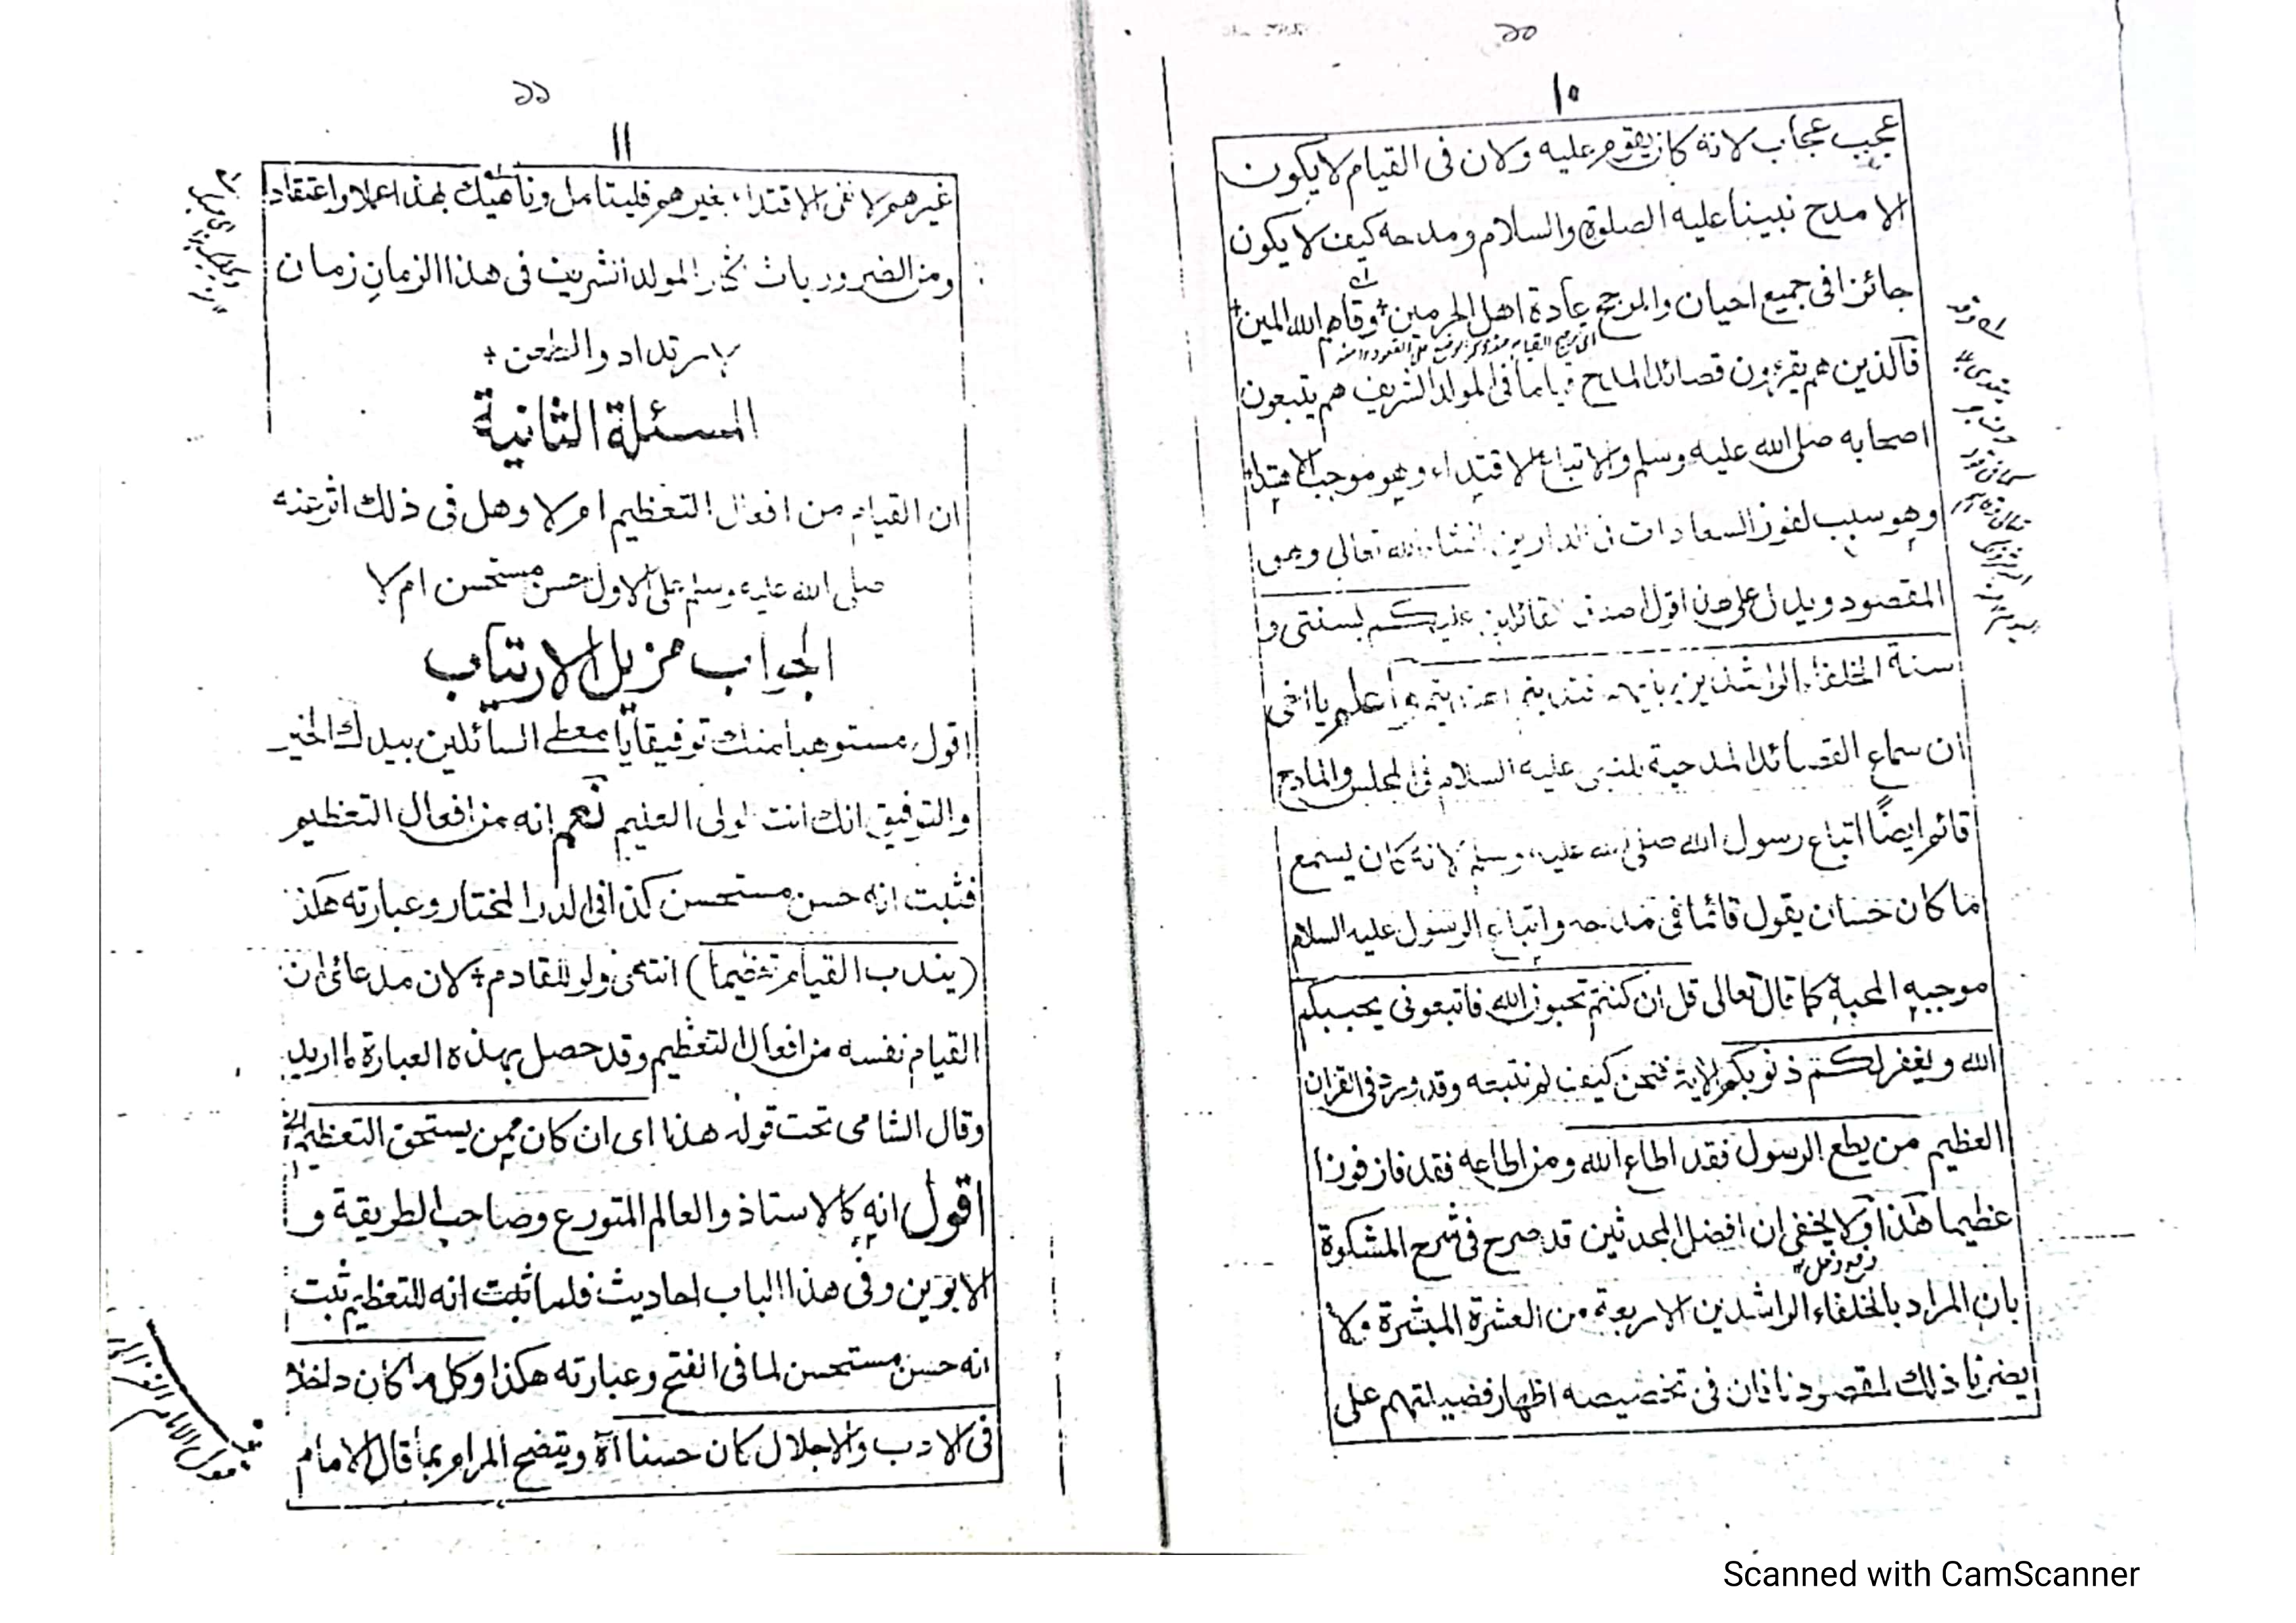 ১০
١٠
عجيب عجاب لانه كان يقوم عليه ولان فى القيام لا يكون
الا مدح نبينا عليه الصلوة والسلام ومدحه كيف لا يكون
جائزا فى جميع احيان والمرجح عادة اهل الحرمين وقاهم الله المين
فالذين هم يقرءون قصائد المدح قياما فى المولد الشريف هم يتبعون
اصحابه صلى الله عليه وسلم والاتباع الاقتداء وهو موجب الاهتداء
وهو سبب لفوز السعادات فى الدارين انشاء الله تعالى وهو
المقصود ويدل على هذا قول اصدق القائلين عليكم بسنتى و
سنة الخلفاء الراشدين واعلم يا اخى
ان سماع القصائد المدحية للنبى عليه السلام فى المجلس والمادح
قائم ايضًا اتباع رسول الله صلى الله عليه وسلم لانه كان يسمع
ما كان حسان يقول قائما فى مدحه واتباع الرسول عليه السلام
موجبه المحبة كما قال تعالى قل ان كنتم تحبون الله فاتبعونى يحببكم
الله ويغفر لكم ذنوبكم الاية فنحن كيف لم نتبته وقد ورد فى القران
العظيم من يطع الرسول فقد اطاع الله ومن اطاعه فقد فاز فوزا
عظيما هذا ولا يخفى ان افضل المحدثين قد صرح فى شرح المشكوة
بان المراد بالخلفاء الراشدين الاربعة من العشرة المبشرة ولا
يضرنا ذلك لمقصودنا فان فى تخصيصه اظهار فضيلتهم على
১১
١١
غيرهم لا نفى الاقتداء بغيرهم فليتامل وناهيك بهذا عملا واعتقادا
ومن الضروريات المولد الشريف فى هذا الزمان زمان
الارتداد والطعن
المسئلة الثانية
ان القيام من افعال التعظيم ام لا وهل فى ذلك اثر عنه
صلى الله عليه وسلم على الاول حسن مستحسن ام لا
الجواب مزيل الارتياب
اقول مستوهبا منك توفيقا يا معطى السائلين بيدك الخير
والتوفيق انك انت المولى العليم نعم انه من افعال التعظيم
فثبت انه حسن مستحسن كذا فى الدر المختار وعبارته هكذا
(يندب القيام تعظيما) انتهى ولو للقادم لان مدعائى ان
القيام نفسه من افعال التعظيم وقد حصل بهذه العبارة ما اريد
وقال الشامى تحت قوله هذا اى ان كان ممن يستحق التعظيم الخ
اقول انه كالاستاذ والعالم المتورع وصاحب الطريقة و
الابوين وفى هذا الباب احاديث فلما ثبت انه للتعظيم ثبت
انه حسن مستحسن لما فى الفتح وعبارته هكذا وكل ما كان داخلا
فى الادب والاجلال كان حسنا اه ويتضح المرام بما قال الامام
Scanned with CamScanner